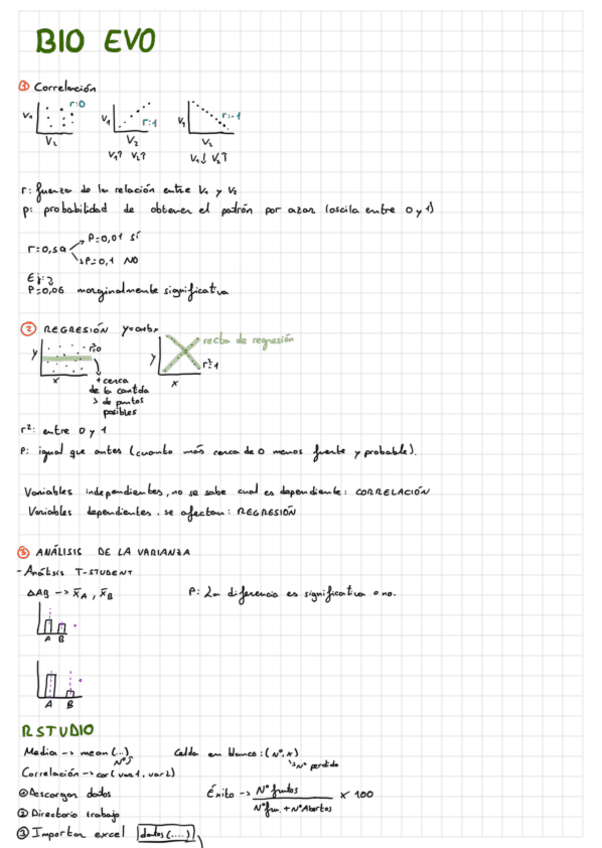 BIO EVO
① Correlación
V₁ r=0 V₂
V₁ r=1 V₂
V₁ r=-1 V₂
V₁↑ V₂↑
V₁↓ V₂↑
r: fuerza de la relación entre V₁ y V₂
p: probabilidad de obtener el patrón por azar (oscila entre 0 y 1)
P=0,01 sí
r=0,59
P=0,1 NO
Ej:
P=0,06 marginalmente significativa
② REGRESIÓN y=a+bx
y r²=0 x
y recta de regresión r²=1 x
+ cerca
de la cantida
> de puntos
posibles
r²: entre 0 y 1
P: igual que antes (cuanto más cerca de 0 menos fuerte y probable).
Variables independientes, no se sabe cual es dependiente: CORRELACIÓN
Variables dependientes, se afectan: REGRESIÓN
③ ANÁLISIS DE LA VARIANZA
- Análisis T-STUDENT
ΔAB -> X̄A, X̄B P: La diferencia es significativa o no.
A B
A B
RSTUDIO
Media -> mean (...) Celda en blanco: (Nº, x)
NºS Nº perdido
Correlación -> cor (var1, var2)
① Descargar datos
Éxito -> Nº frutos / Nº fru. + Nº Abortos x 100
② Directorio trabajo
③ Importar excel datos (....)